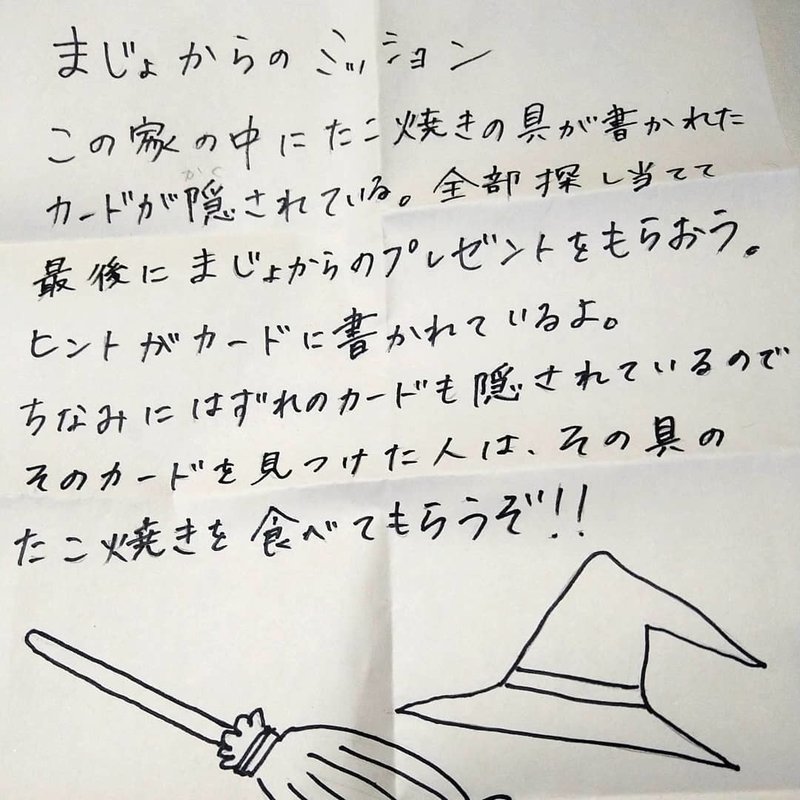 まじょからのミッション
この家の中にたこ焼きの具が書かれた
カードが隠されている。全部探し当てて
最後にまじょからのプレゼントをもらおう。
ヒントがカードに書かれているよ。
ちなみにはずれのカードも隠されているので
そのカードを見つけた人は、その具の
たこ焼きを食べてもらうぞ!!